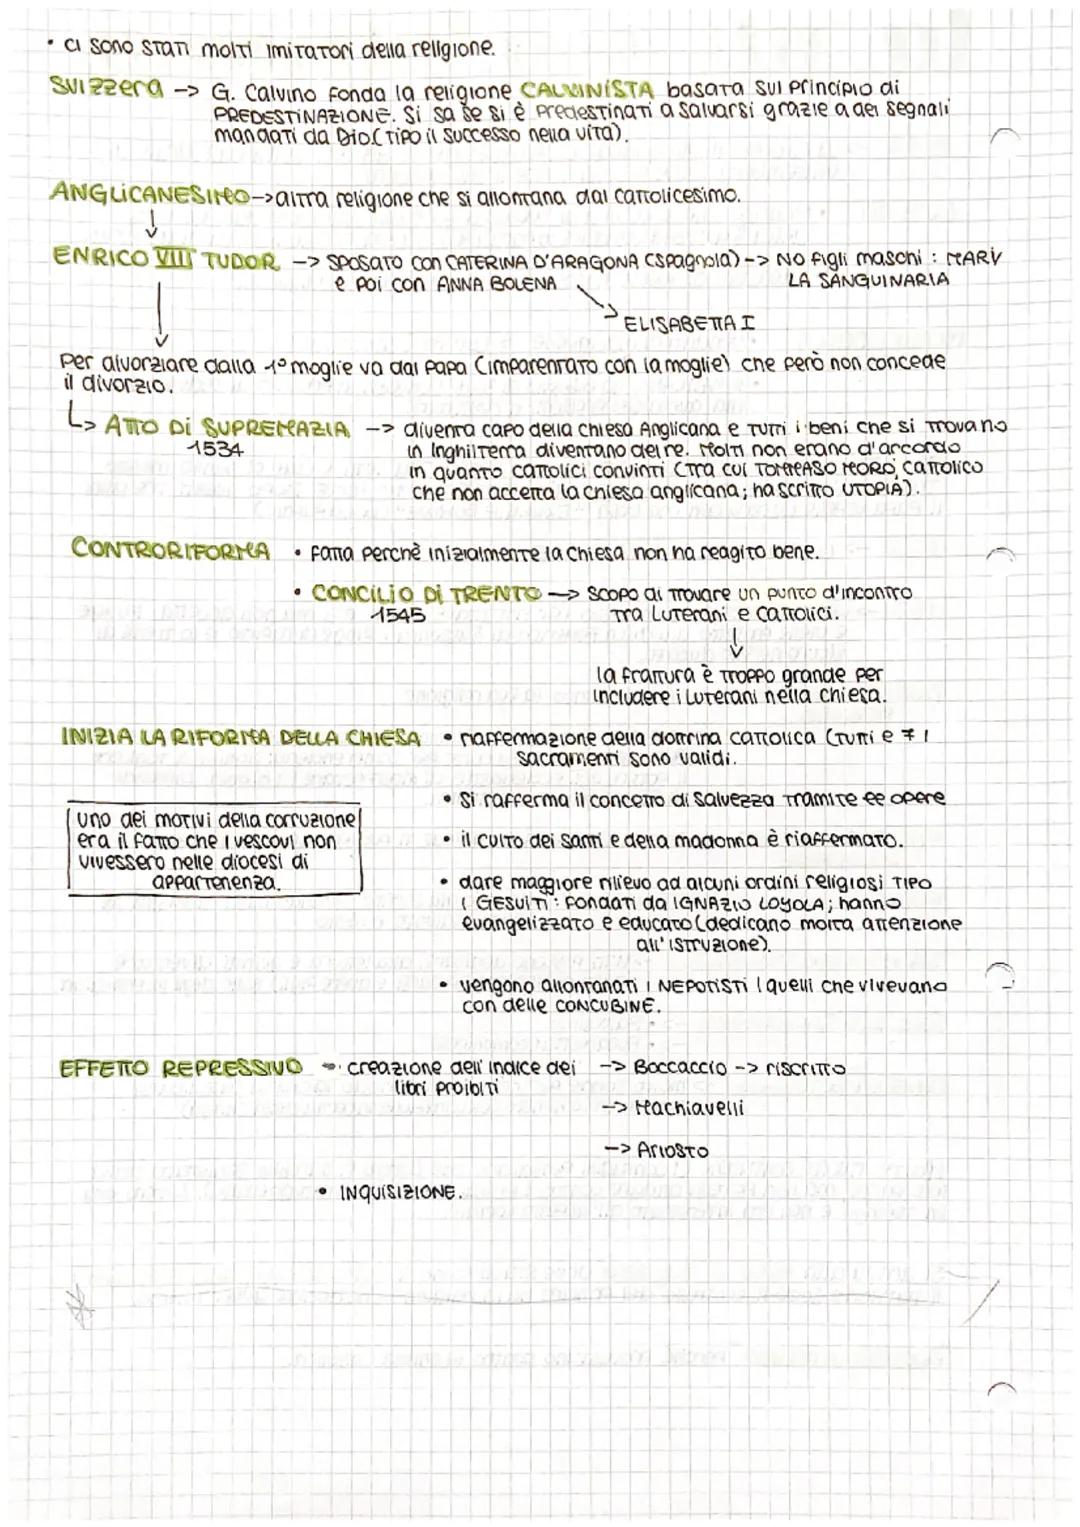 • CI SONO STATI MOLTI IMITATORI della religione.
SVIZZERA -> G. Calvino fonda la religione CALVINISTA basata sul principio di
PREDESTINAZIONE. Si sa se si è predestinati a salvarsi grazie a dei segnali
mandati da Dio (tipo il successo nella vita).
ANGLICANESIMO -> altra religione che si allontana dal cattolicesimo.
ENRICO VIII TUDOR -> SPOSATO con CATERINA D'ARAGONA (spagnola) -> NO figli maschi: MARY
e poi con ANNA BOLENA LA SANGUINARIA
ELISABETTA I
Per divorziare dalla 1° moglie va dal Papa (imparentato con la moglie) che però non concede
il divorzio.
ATTO DI SUPREMAZIA -> diventa capo della chiesa Anglicana e tutti i beni che si trovano
1534 in Inghilterra diventano del re. Molti non erano d'accordo
in quanto cattolici convinti (tra cui TOMMASO MORO, cattolico
che non accetta la chiesa anglicana; ha scritto UTOPIA).
CONTRORIFORMA • fatta perchè inizialmente la Chiesa non ha reagito bene.
• CONCILIO DI TRENTO -> SCOPO di trovare un punto d'incontro
1545 tra Luterani e cattolici.
la frattura è troppo grande per
includere i Luterani nella chiesa.
INIZIA LA RIFORMA DELLA CHIESA • riaffermazione della dottrina cattolica (tutti e 7 i
sacramenti sono validi.
• Si rafferma il concetto di salvezza tramite le opere
uno dei motivi della corruzione
era il fatto che i vescovi non
vivessero nelle diocesi di
appartenenza.
• il culto dei santi e della madonna è riaffermato.
• dare maggiore rilievo ad alcuni ordini religiosi tipo
i GESUITI: fondati da IGNAZIO LOYOLA; hanno
evangelizzato e educato (dedicano molta attenzione
all'istruzione).
• vengono allontanati i NEPOTISTI i quelli che vivevano
con delle CONCUBINE.
EFFETTO REPRESSIVO • creazione dell'indice dei -> Boccaccio -> riscritto
libri proibiti
-> Machiavelli
-> Ariosto
• INQUISIZIONE.